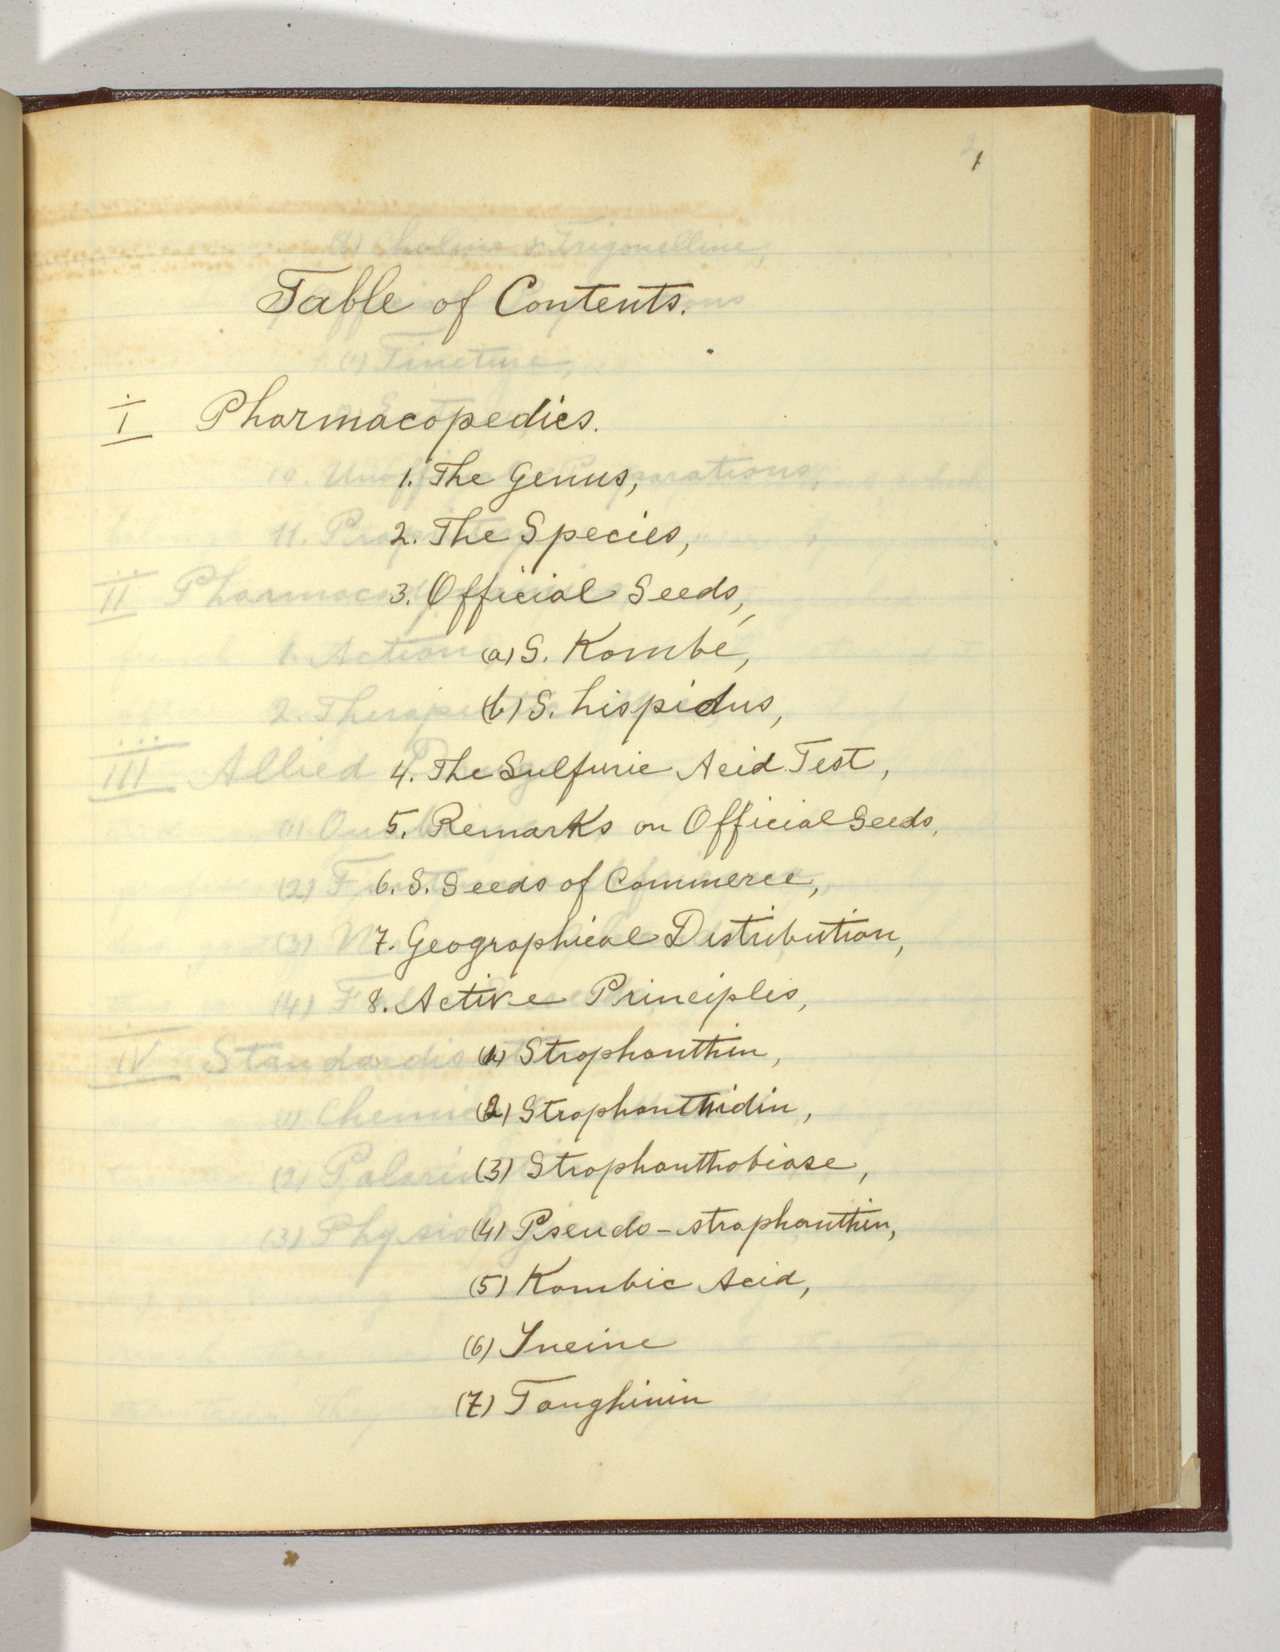 1
Table of Contents.
I Pharmacopedics.
1. The Genus,
2. The Species,
3. Official Seeds,
(a) S. Kombé,
(b) S. hispidus,
4. The Sulfuric Acid Test,
5. Remarks on Official Seeds,
6. S. Seeds of Commerce,
7. Geographical Distribution,
8. Active Principles,
(1) Strophanthin,
(2) Strophanthidin,
(3) Strophanthobiose,
(4) Pseudo-strophanthin,
(5) Kombic Acid,
(6) Ineine
(7) Tanghinin